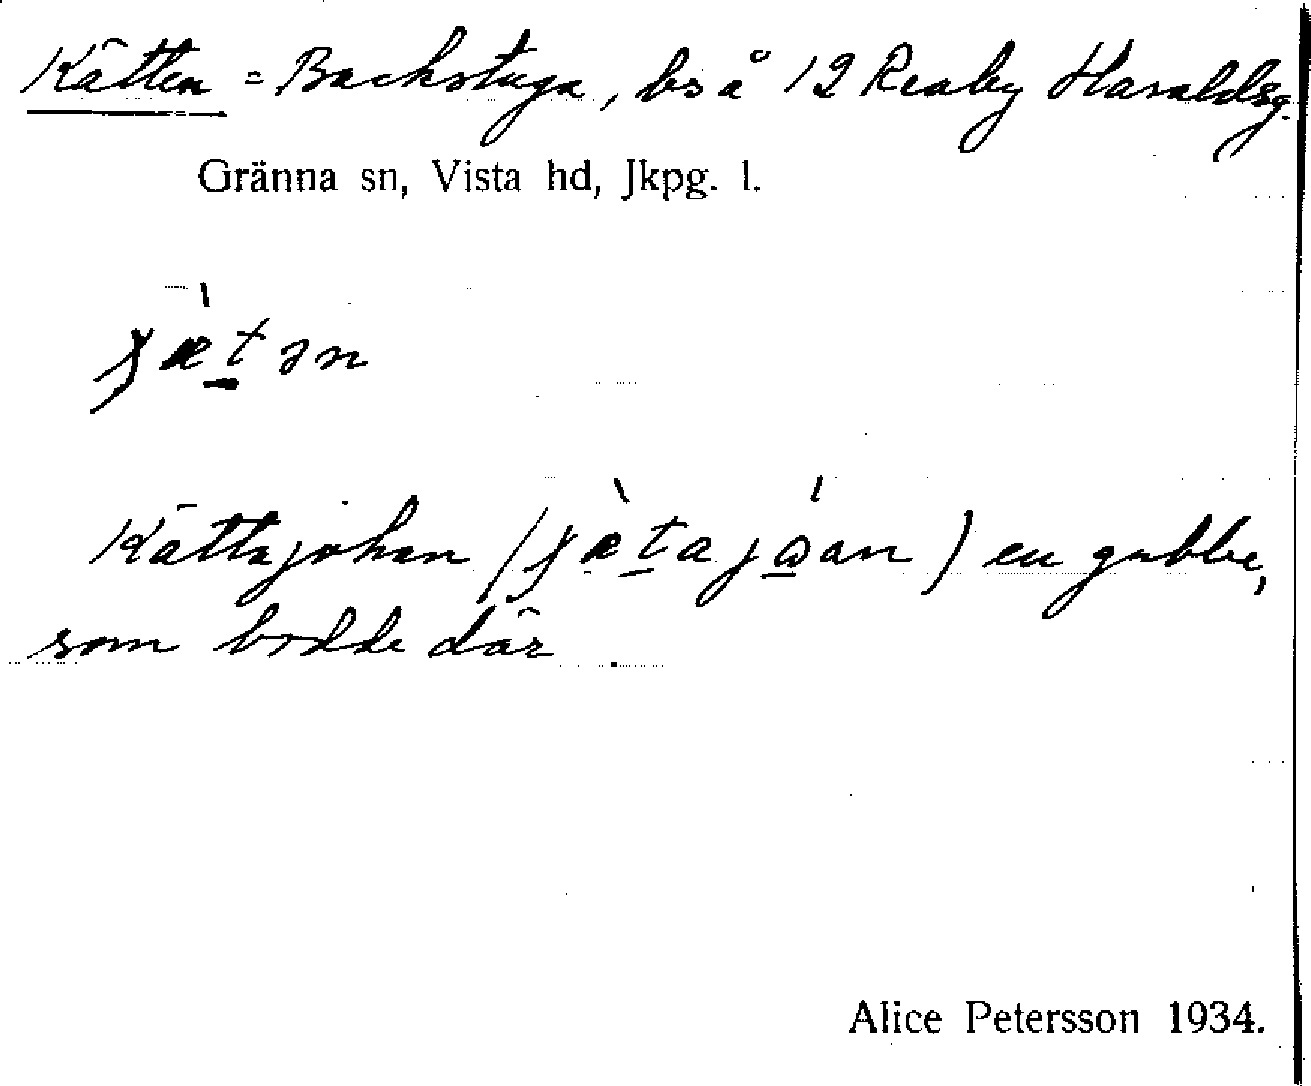 Kätten = Backstuga, bs å 12 Reaby Haraldsg.
Gränna sn, Vista hd, Jkpg. l.
Kättajohan ( ) en gubbe,
som bodde där
Alice Petersson 1934.